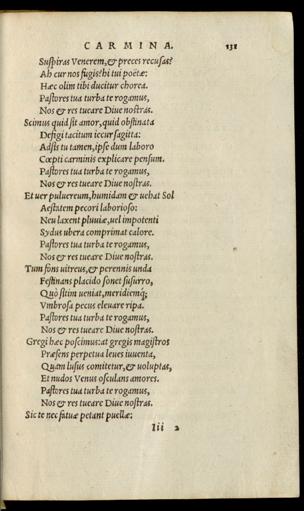 CARMINA. 131
Suspiras Venerem, & preces recusas?
Ah cur nos fugis? hi tui poëtæ:
Hæc olim tibi ducitur chorea.
Pastores tua turba te rogamus,
Nos & res tueare Diue nostras.
Scimus quid sit amor, quid obstinata
Defigi tacitum iecur sagitta:
Adsis tu tamen, ipse dum laboro
Cœpti carminis explicare pensum.
Pastores tua turba te rogamus,
Nos & res tueare Diue nostras.
Et uer puluereum, humidam & uehat Sol
Aestatem pecori laborioso:
Neu laxent pluuiæ, uel impotenti
Sydus ubera comprimat calore.
Pastores tua turba te rogamus,
Nos & res tueare Diue nostras.
Tum fons uitreus, & perennis unda
Festinans placido sonet susurro,
Quò sitim ueniat, meridiemq́;
Vmbrosa pecus eleuare ripa.
Pastores tua turba te rogamus,
Nos & res tueare Diue nostras.
Gregi hæc poscimus: at gregis magistros
Præsens perpetua leues iuuenta,
Quam lusus comitetur, & uoluptas,
Et nudos Venus osculans amores.
Pastores tua turba te rogamus,
Nos & res tueare Diue nostras.
Sic te nec fatuæ petant puellæ:
Iii 2